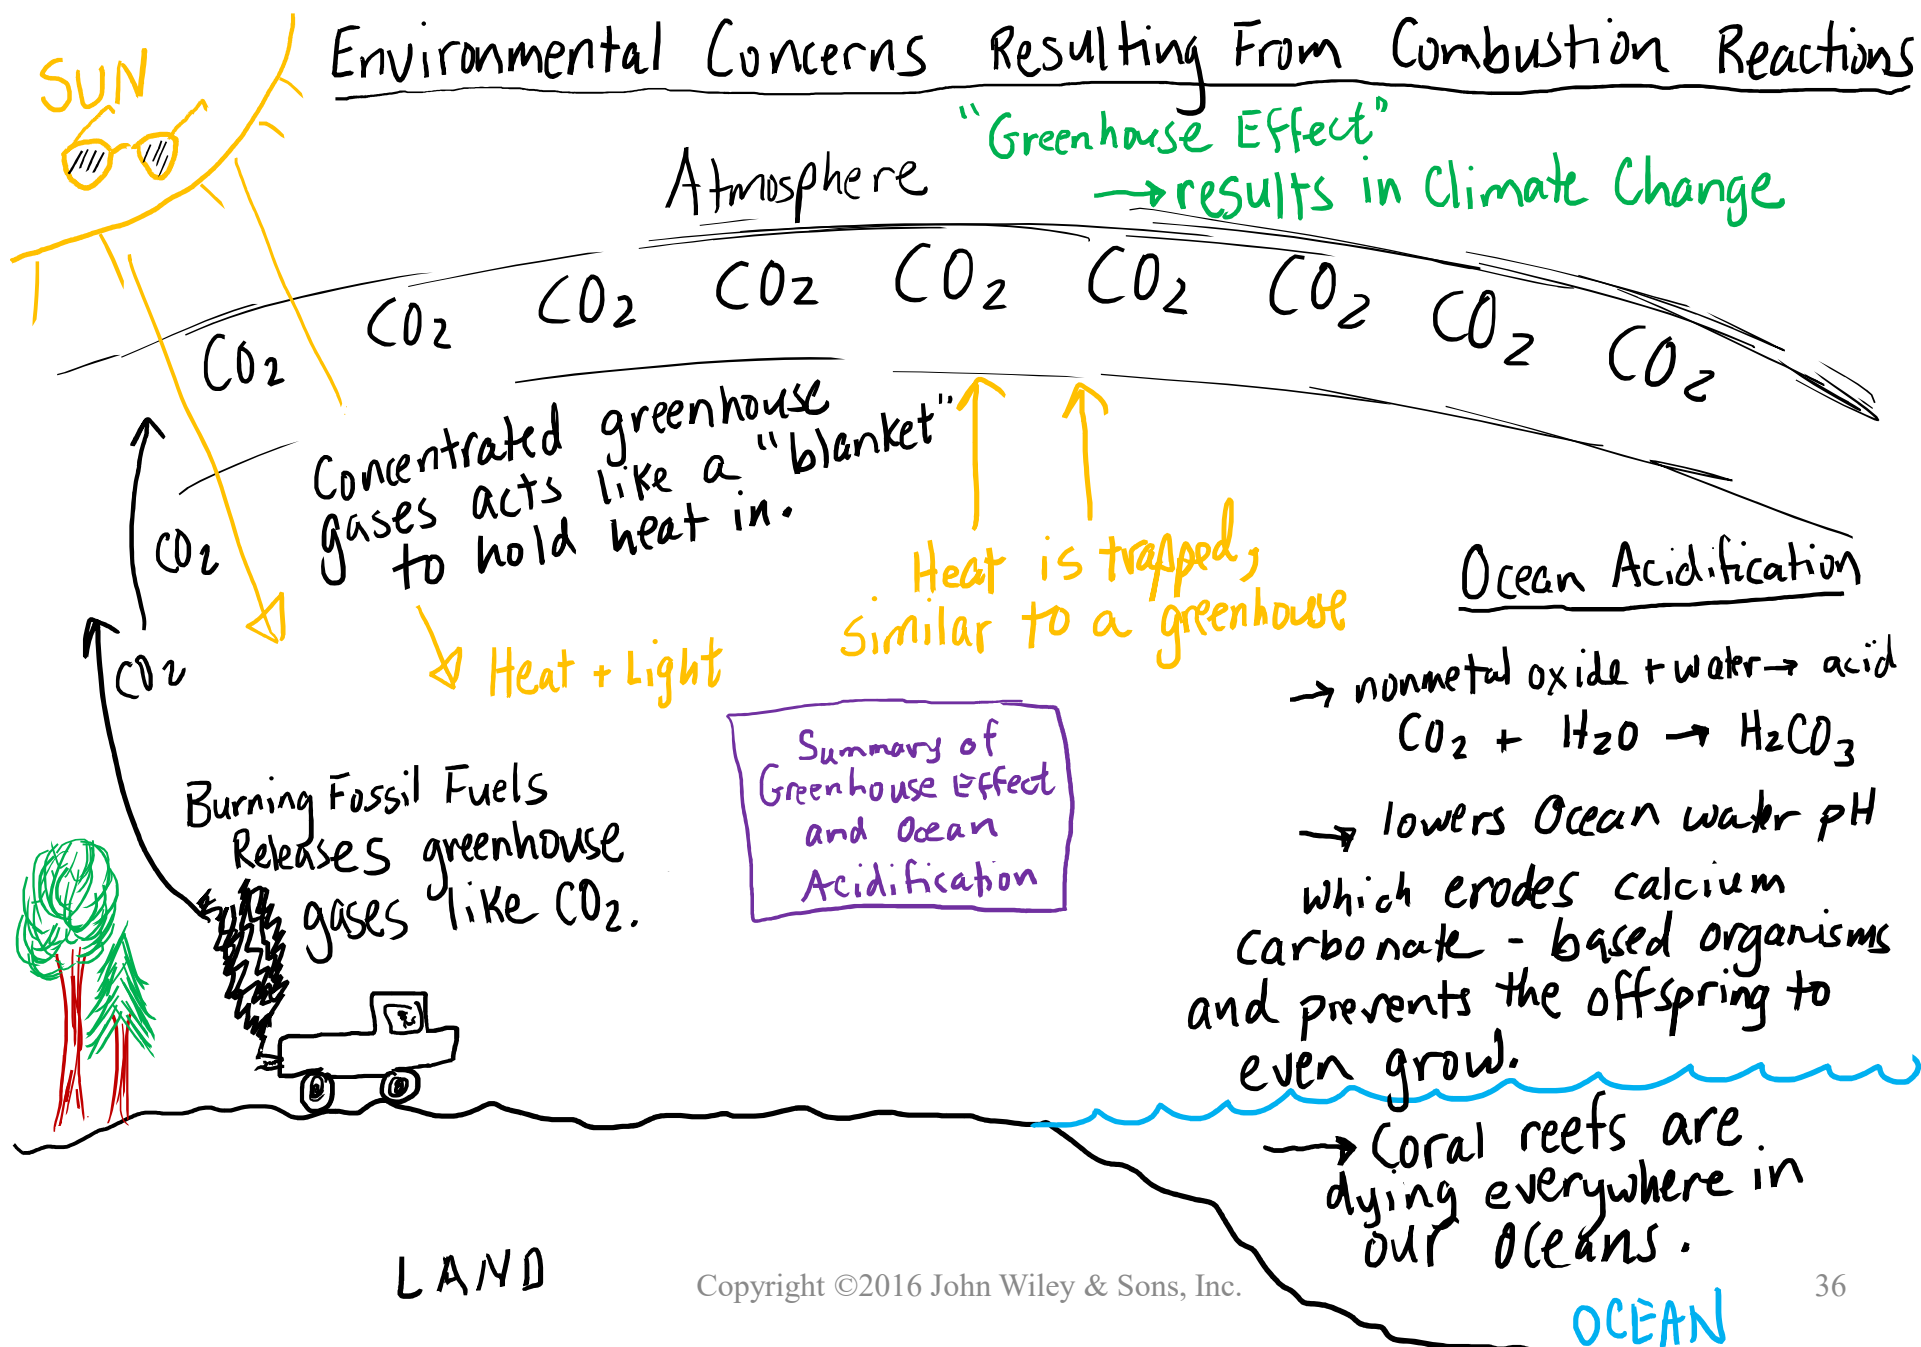 Environmental Concerns Resulting From Combustion Reactions
SUN
"Greenhouse Effect"
→ results in Climate Change
Atmosphere
CO2 CO2 CO2 CO2 CO2 CO2 CO2 CO2 CO2
Concentrated greenhouse
gases acts like a "blanket"
to hold heat in.
CO2
CO2
Heat + Light
Heat is trapped,
similar to a greenhouse
Burning Fossil Fuels
Releases greenhouse
gases like CO2.
Summary of
Greenhouse Effect
and Ocean
Acidification
Ocean Acidification
→ nonmetal oxide + water → acid
CO2 + H2O → H2CO3
→ lowers Ocean water pH
which erodes calcium
carbonate - based organisms
and prevents the offspring to
even grow.
→ Coral reefs are
dying everywhere in
our oceans.
LAND
Copyright ©2016 John Wiley & Sons, Inc.
36
OCEAN